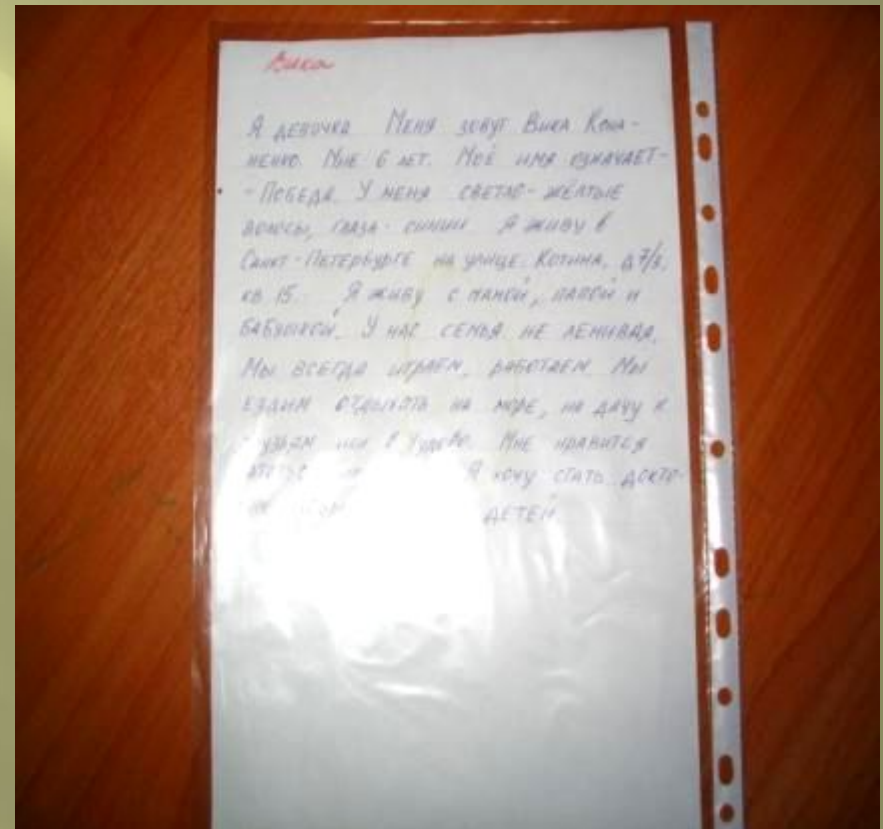 Вика
Я ДЕВОЧКА МЕНЯ ЗОВУТ ВИКА КОНА-
НЕНКО. МНЕ 6 ЛЕТ. МОЁ ИМЯ ОЗНАЧАЕТ-
- ПОБЕДА. У МЕНЯ СВЕТЛО-ЖЁЛТЫЕ
ВОЛОСЫ, ГЛАЗА - СИНИИ Я ЖИВУ В
САНКТ-ПЕТЕРБУРГЕ НА УЛИЦЕ КОТИНА,
КВ 15. Я ЖИВУ С МАМОЙ, ПАПОЙ И
БАБУШКОЙ. У НАС СЕМЬЯ НЕ ЛЕНИВАЯ.
МЫ ВСЕГДА ИГРАЕМ, РАБОТАЕМ. МЫ
ЕЗДИМ ОТДЫХАТЬ НА МОРЕ, НА ДАЧУ К
В ЧУДОВО. МНЕ НРАВИТСЯ
Я ХОЧУ СТАТЬ ДОКТО-
ДЕТЕЙ